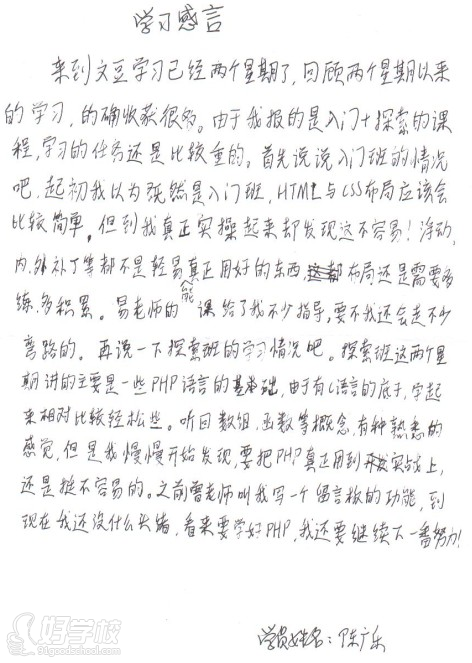 学习感言
来到文豆学习已经两个星期了,回顾两个星期以来
的学习,的确收获很多。由于我报的是入门+探索的课
程,学习的任务还是比较重的。首先说说入门班的情况
吧,起初我以为既然是入门班,HTML与CSS布局应该会
比较简单。但到我真正实操起来却发现这不容易!浮动,
内,外补丁等都不是轻易能真正用好的东西,布局还是需要多
练,多积累。易老师的课给了我不少指导,要不我还会走不少
弯路的。再说一下探索班的学习情况吧。探索班这两个星
期讲的主要是一些PHP语言的基础,由于有C语言的底子,学起
来相对比较轻松些。听回数组,函数等概念,有种熟悉的
感觉,但是我慢慢开始发现,要把PHP真正用到开发实战上,
还是挺不容易的。之前雷老师叫我写一个留言板的功能,到
现在我还没什么头绪,看来要学好PHP,我还要继续下一番努力!
学员姓名:陈广乐
好学校
www.91goodschool.com